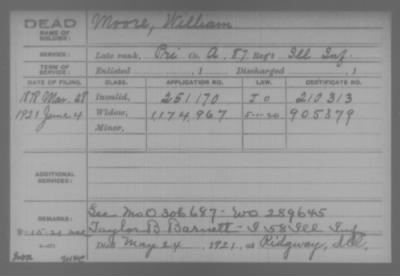 DEAD
NAME OF SOLDIER:
Moore, William
SERVICE:
Late rank, Pri Co. A, 87 Reg't Ill Inf
TERM OF SERVICE:
Enlisted , 1 Discharged , 1
DATE OF FILING. CLASS. APPLICATION NO. LAW. CERTIFICATE NO.
Mar. 28 Invalid, 251170 210313
1921 June 4 Widow, 1,174,967 5-1-20 905879
Minor,
ADDITIONAL SERVICES:
REMARKS:
See Mo 306687 - WO 289645
Taylor B Barnett - I 58 Ill Inf
Died May 24, 1921, at Ridgway, Ill.